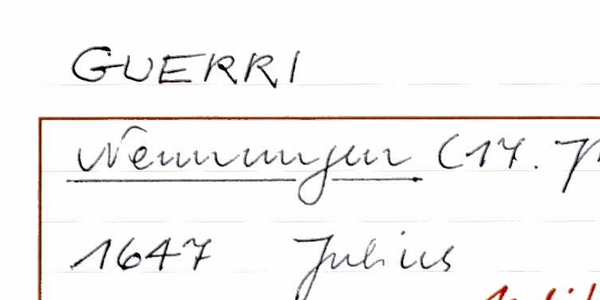 GUERRI
Nennungen (17. J
1647 Julius